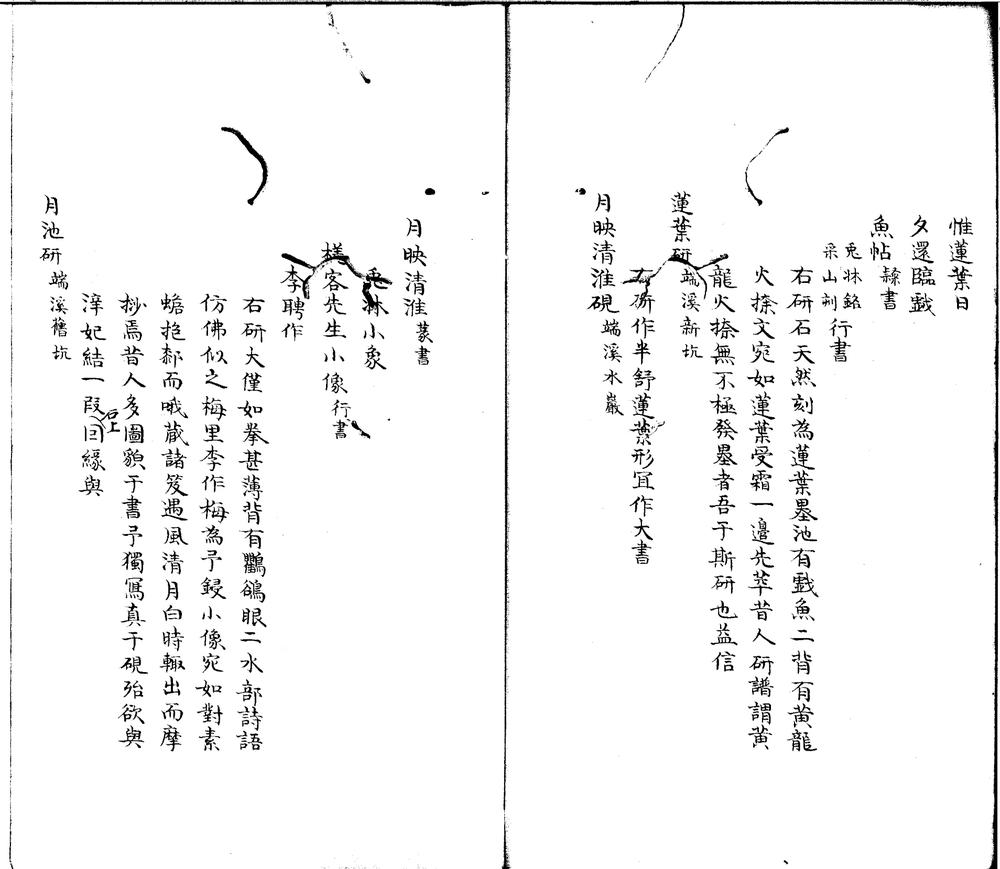 惟蓮葉日
夕還臨戲
魚帖隸書
兔牀銘
采山刻行書
右研石天然刻為蓮葉墨池有戲魚二背有黄龍
火捺文宛如蓮葉受霜一邊先萃昔人研譜謂黄
龍火捺無不極發墨者吾于斯研也益信
蓮葉研端溪新坑
右研作半舒蓮葉形宜作大書
月映清淮硯端溪水巖
月映清淮篆書
兔牀小象
槎客先生小像行書
李聘作
右研大僅如拳甚薄背有鸜鵒眼二水部詩語
仿佛似之梅里李作梅為予鋟小像宛如對素
蟾抱郗而哦蔵諸笈遇風清月白時輙出而摩
挱焉昔人多圖貌于書予獨寫真于硯殆欲與
滓妃結一叚石上因緣與
月池研端溪舊坑